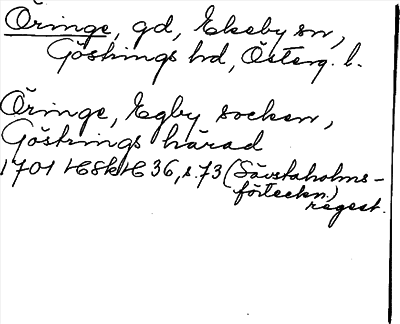 Öringe, gd, Ekeby sn,
Göstrings hd, Österg. l.
Öringe, Egby socken,
Göstrings härad
1701 HSH 36, s. 73 (Sävstaholms-
förteckn.)
regest.